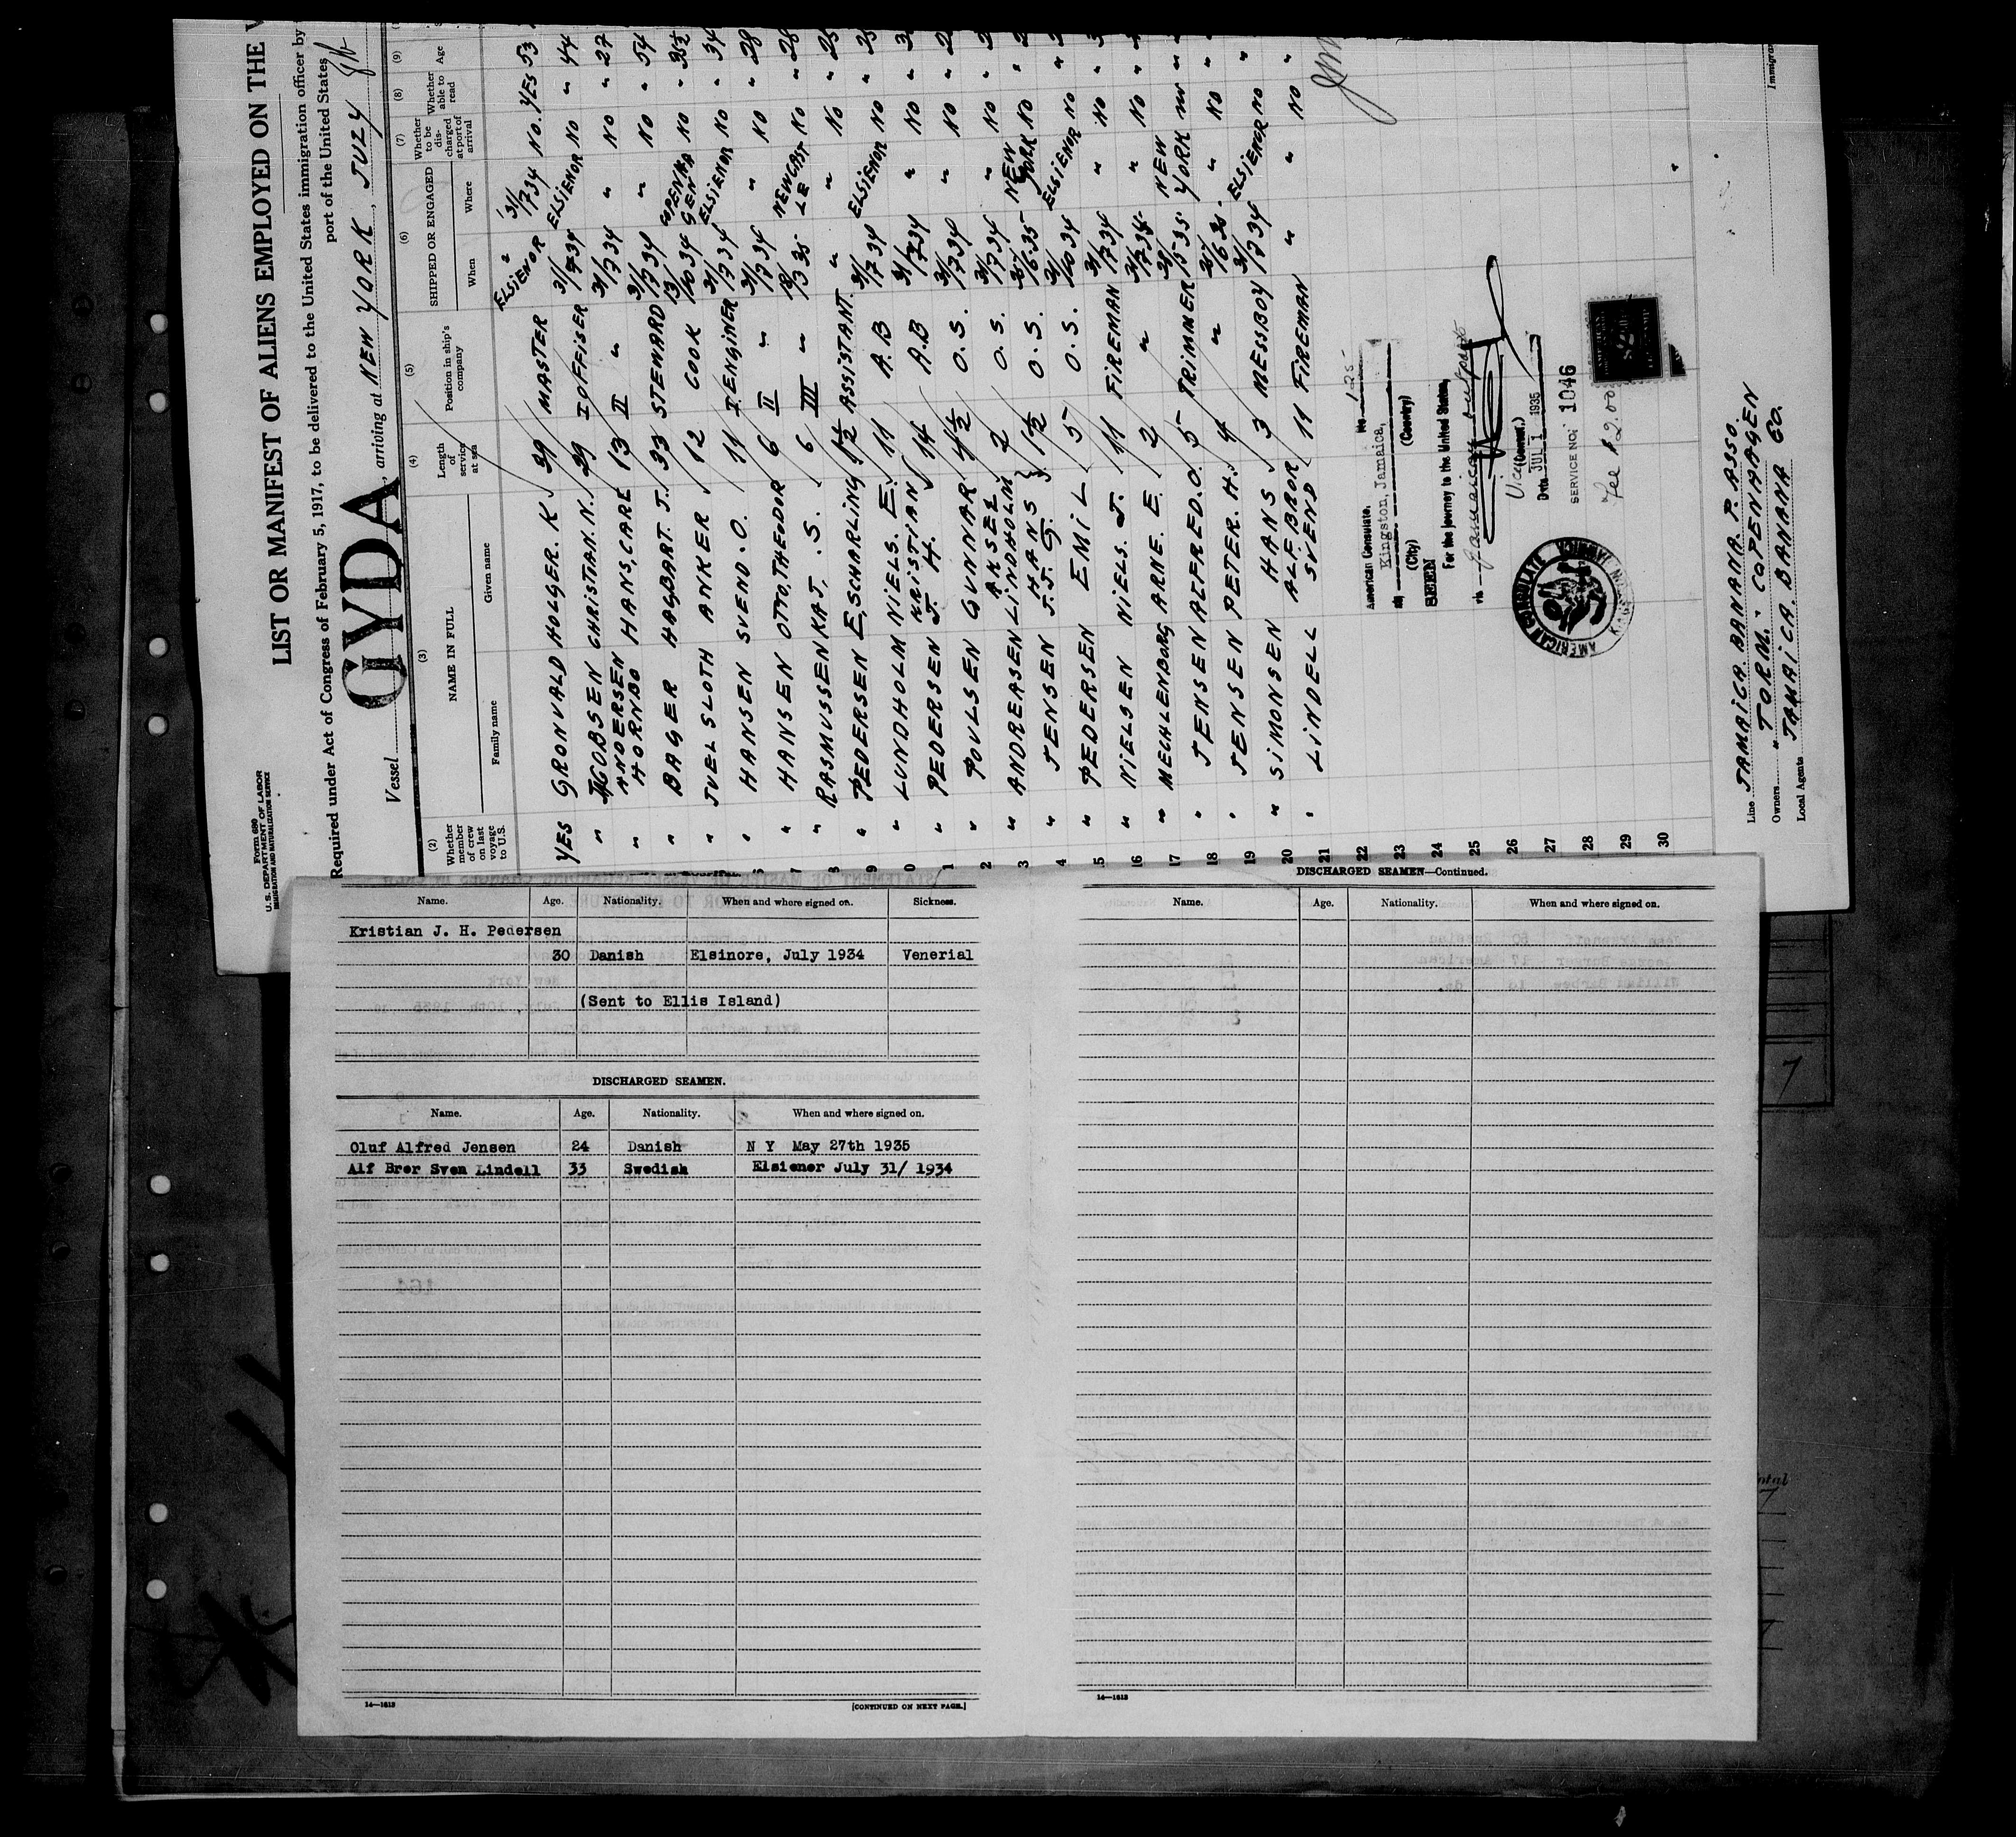 Form 680
U. S. DEPARTMENT OF LABOR
IMMIGRATION AND NATURALIZATION SERVICE
LIST OR MANIFEST OF ALIENS EMPLOYED ON THE
Required under Act of Congress of February 5, 1917, to be delivered to the United States immigration officer by
port of the United States
Vessel GYDA, arriving at NEW YORK, JULY
(2) (3) (4) (5) (6) (7) (8) (9)
Whether member of crew on last voyage to U.S. NAME IN FULL Length of service at sea Position in ship's company SHIPPED OR ENGAGED Whether to be discharged at port of arrival Whether able to read Age
Family name Given name When Where
YES GRONVALD HOLGER. K. 39 MASTER ELSIENOR 31/7 34 NO. YES 53
" JACOBSEN CHRISTIAN. N. 29 I OFFISER 31/7 34 ELSIENOR NO " 44
" ANDERSEN HORNBO HANS, CARL 13 II " 31/7 34 " NO " 27
" BAGER HAGBART. J. 33 STEWARD 31/7 34 " NO " 54
" JUELSLOTH ANKER 12 COOK 13/10 34 COPENHAGEN NO "
" HANSEN SVEND. O. 11 I ENGINER 31/7 34 ELSIENOR NO " 34
" HANSEN OTTO, THEODOR 6 II " 31/7 34 " NO " 28
" RASMUSSEN KAJ. S. 6 III " 13/3 35 NEWCASTLE NO " 28
" PEDERSEN E, SCHARLING 1½ ASSISTANT " " NO " 25
" LUNDHOLM NIELS. E. 11 A.B 31/7 34 ELSIENOR NO "
" PEDERSEN KRISTIAN J. H. 14 A.B 31/7 34 " NO "
" POULSEN GUNNAR 4½ O.S. 31/7 34 " NO "
" ANDREASEN AKSEL LINDHOLM 2 O.S. 31/7 34 " NO "
" JENSEN HANS J. J. G. 1½ O.S. 6 35 NEW YORK NO "
" PEDERSEN EMIL 5 O.S. 10 34 ELSIENOR NO "
" NIELSEN NIELS. J. 11 FIREMAN 31/7 34 " NO "
" MECHLENBORG ARNE. E. 2 " " NO "
" JENSEN ALFRED. O. 5 TRIMMER 5 35 NEW YORK "
" JENSEN PETER. H. 4 " 6 35 " NO "
" SIMONSEN HANS 3 MESSBOY 31/7 34 ELSIENOR NO "
" LINDELL ALF. BROR SVEND 11 FIREMAN " " NO "
15
16
17
18
19
20
21
22
23
24
25
26
27
28
29
30
American Consulate, No. 125
Kingston, Jamaica,
(City) (Country)
SEEN
For the journey to the United States,
via Jamaican outports
Vice (Consul.)
Date JUL 1 1935
SERVICE NO. 1046
Fee $2.00
AMERICAN CONSULATE
Line JAMAICA. BANANA. P. ASSO.
Owners "TORM. COPENHAGEN
Local Agents JAMAICA. BANANA CO.
Name. Age. Nationality. When and where signed on. Sickness.
Kristian J. H. Pedersen
30 Danish Elsinore, July 1934 Venerial
(Sent to Ellis Island)
DISCHARGED SEAMEN.
Name. Age. Nationality. When and where signed on.
Oluf Alfred Jensen 24 Danish N Y May 27th 1935
Alf Bror Sven Lindell 33 Swedish Elsiener July 31/ 1934
14—1613 [CONTINUED ON NEXT PAGE.]
DISCHARGED SEAMEN—Continued.
Name. Age. Nationality. When and where signed on.
14—1613
7